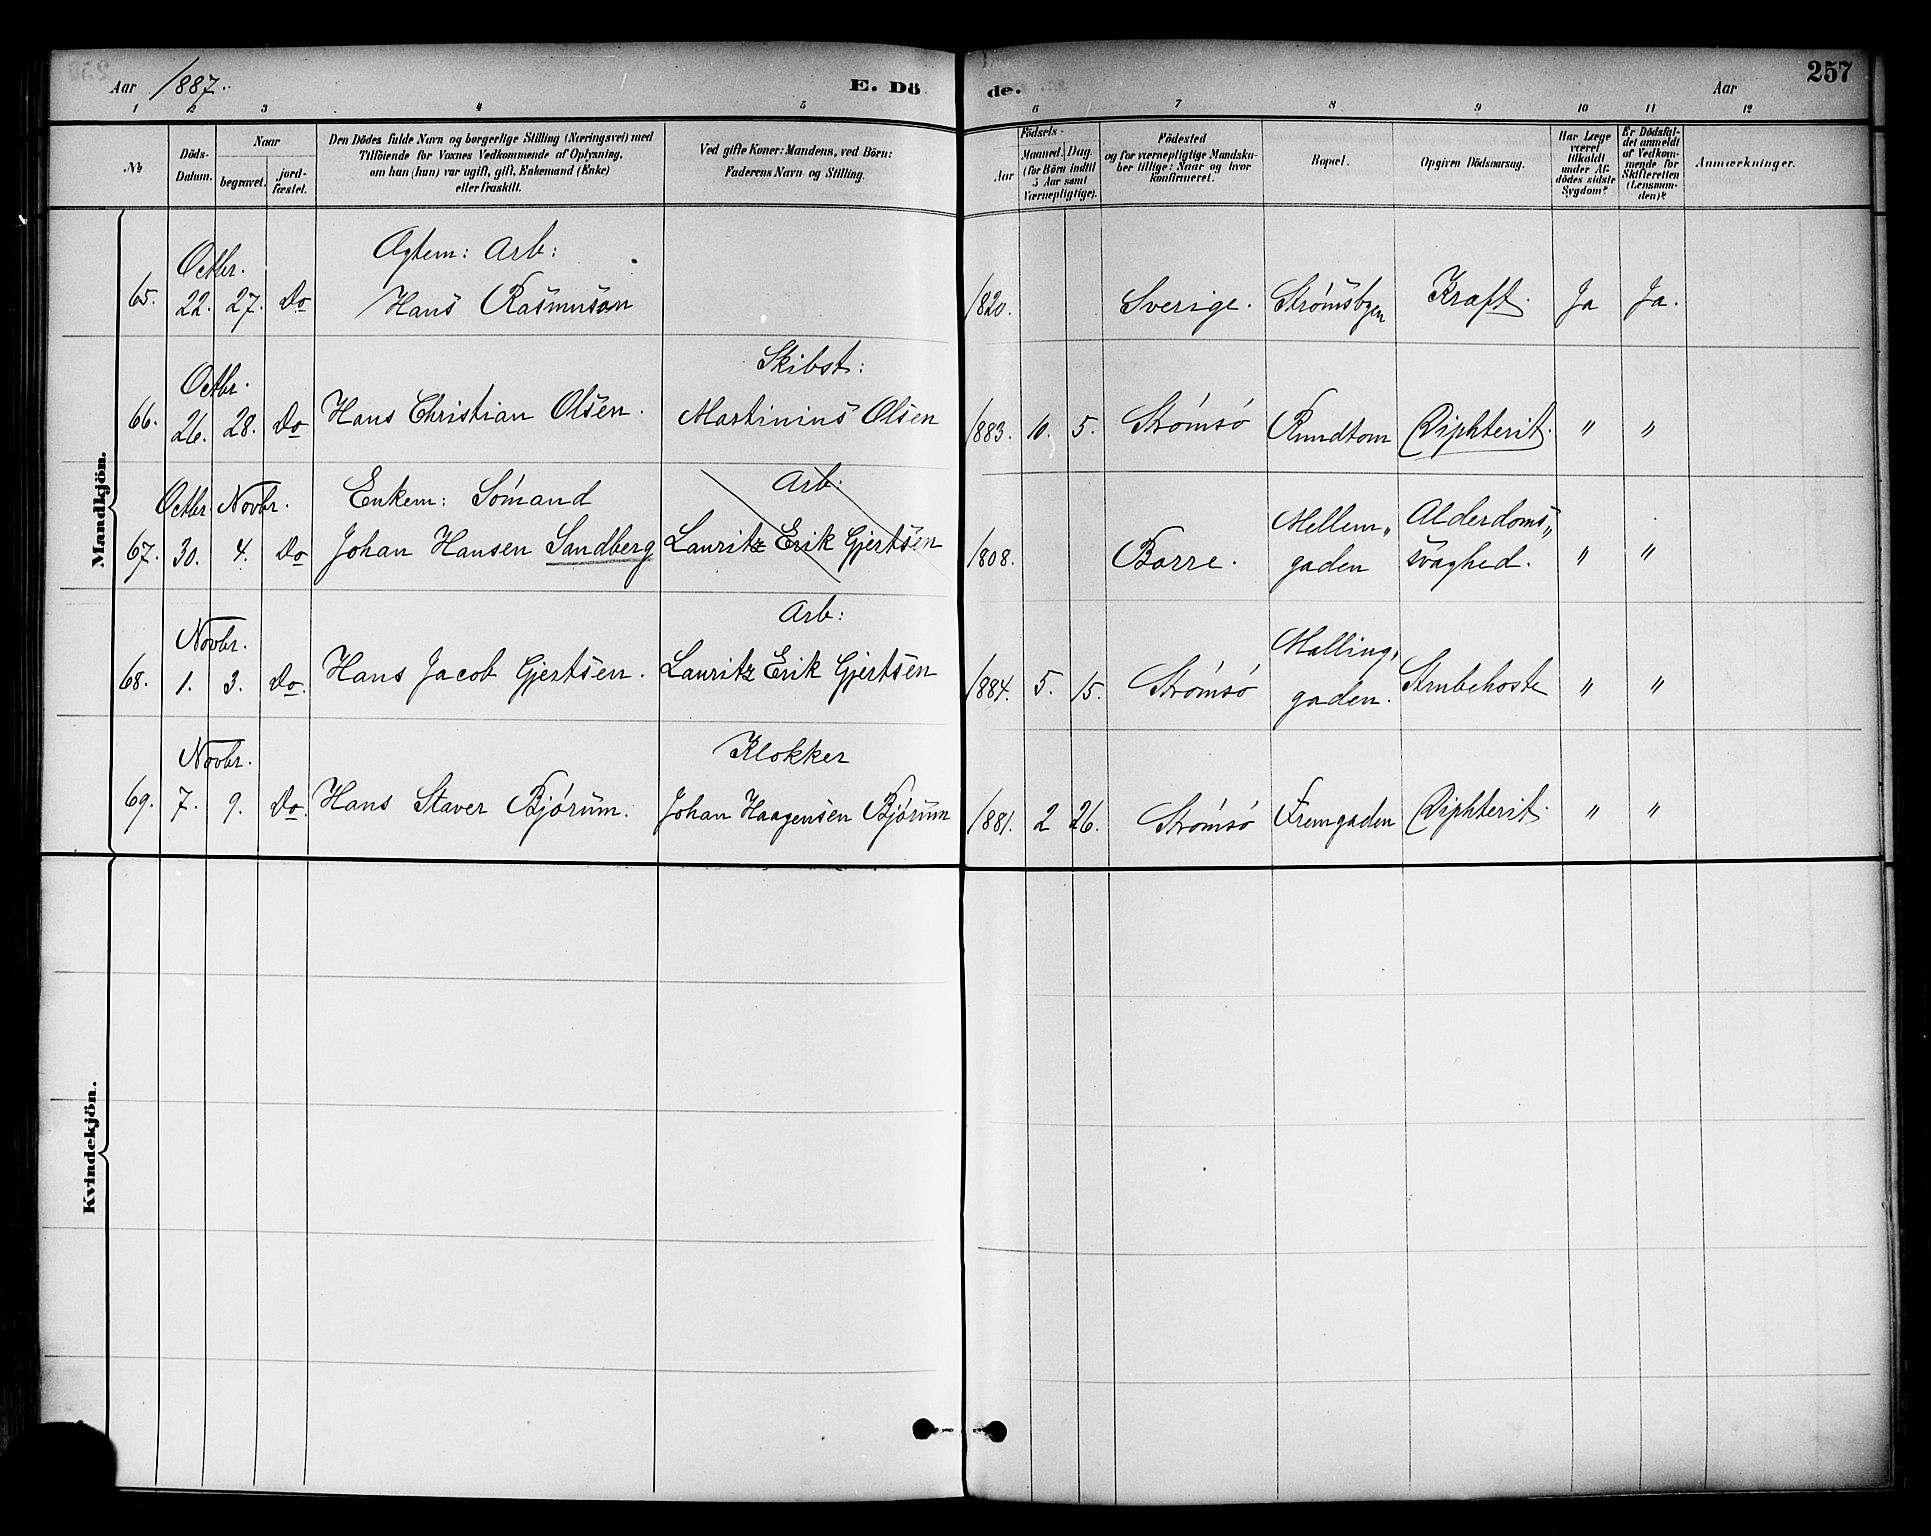 Aar 1887.
E. Dö
de.
Aar
257
1 2 3 4 5 6 7 8 9 10 11 12
No
Döds-Datum.
Naar
begravet.
jord-fæstet.
Den Dödes fulde Navn og borgerlige Stilling (Næringsvei) med
Tilföiende for Voxnes Vedkommende af Oplysning,
om han (hun) var ugift, gift, Enkemand (Enke)
eller fraskilt.
Ved gifte Koner: Mandens, ved Börn:
Faderens Navn og Stilling.
Födsels-
Aar
Maaned.
Dag
(for Börn indtil
5 Aar samt
Værnepligtige).
Födested
og for værnepligtige Mandska-
ber tillige: Naar og hvor
konfirmeret.
Bopæl.
Opgiven Dödsaarsag.
Har Læge
været
tilkaldt
under Af-
dödes sidste
Sygdom?
Er Dödsfal-
det anmeldt
af Vedkom-
mende for
Skifteretten
(Lensman-
den)?
Anmærkninger.
Mandkjön.
Octbr. Ægtem: Arb:
65. 22. 27. Do Hans Rasmuson 1820. Sverige. Strømsbyen Kræft. Ja Ja.
Octbr. Skibst:
66. 26. 28. Do Hans Christian Olsen. Martinius Olsen 1883. 10. 5. Strømsø Rundtom Diphterit. " "
Octbr. Novbr. Enkem: Sømand Arb: Mellem„ Alderdoms„
67. 30. 4. Do Johan Hansen Sandberg Lauritz Erik Gjertsen 1808. Borre. gaden svaghed. " "
Novbr. Arb: Malling„
68. 1. 3. Do. Hans Jacob Gjertsen. Lauritz Erik Gjertsen 1884. 5. 15. Strømsø gaden. Strubehoste " "
Novbr. Klokker
69. 7. 9. Do. Hans Staver Bjørum. Johan Haagensen Bjørum 1881. 2 26. Strømsø Fremgaden Diphterit. " "
Kvindekjön.